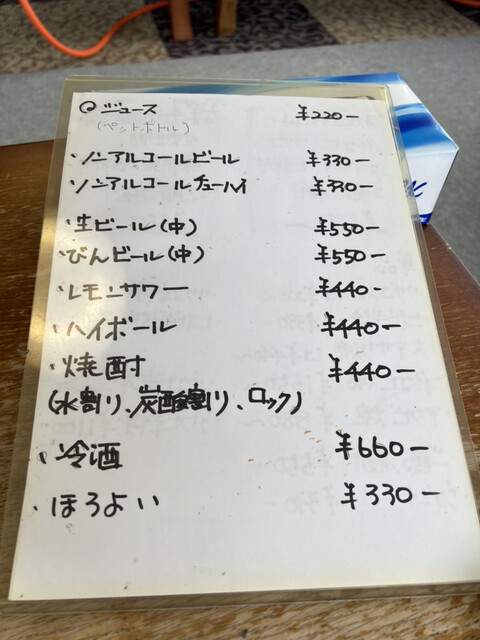 ◎ジュース ¥220-
(ペットボトル)
・ノンアルコールビール ¥330-
・ノンアルコールチューハイ ¥330-
・生ビール(中) ¥550-
・びんビール(中) ¥550-
・レモンサワー ¥440-
・ハイボール ¥440-
・焼酎 ¥440-
(水割り、炭酸割り、ロック)
・冷酒 ¥660-
・ほろよい ¥330-